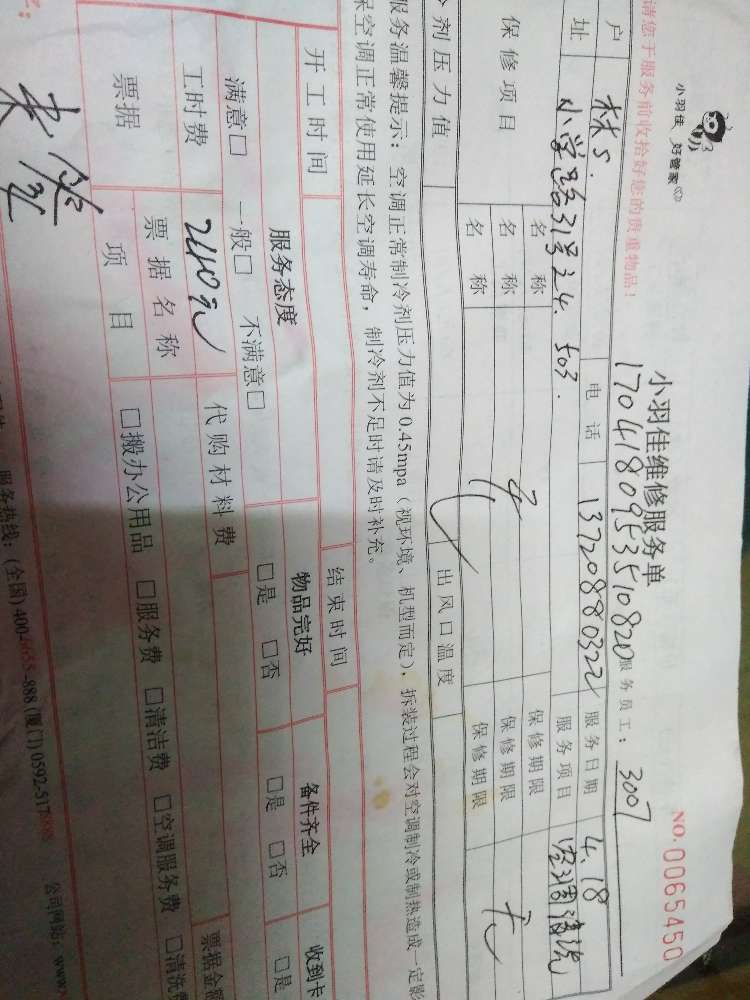 小羽佳 好管家
小羽佳维修服务单
NO:0065450
1704180953510820
服务员工: 3007
请您于服务前收拾好您的贵重物品!
户 林S. 电话 13720880322 服务日期 4.18
址 小学路31号之4. 503. 服务项目 空调清洗
保修项目 名称 保修期限
名称 保修期限
名称 保修期限
无
冷剂压力值 出风口温度
服务温馨提示: 空调正常制冷剂压力值为0.45mpa (视环境、机型而定), 拆装过程会对空调制冷或制热造成一定影
保空调正常使用延长空调寿命, 制冷剂不足时请及时补充。
开工时间 结束时间
服务态度 物品完好 备件齐全 收到卡
满意□ 一般□ 不满意□ □是 □否 □是 □否 □是
工时费 240元 代购材料费
票据 票据名称 票据金额
项目 □搬办公用品 □服务费 □清洁费 □空调服务费 □清洗费
服务热线: (全国) 400-6655-888 (厦门) 0592-517
公司网站: www